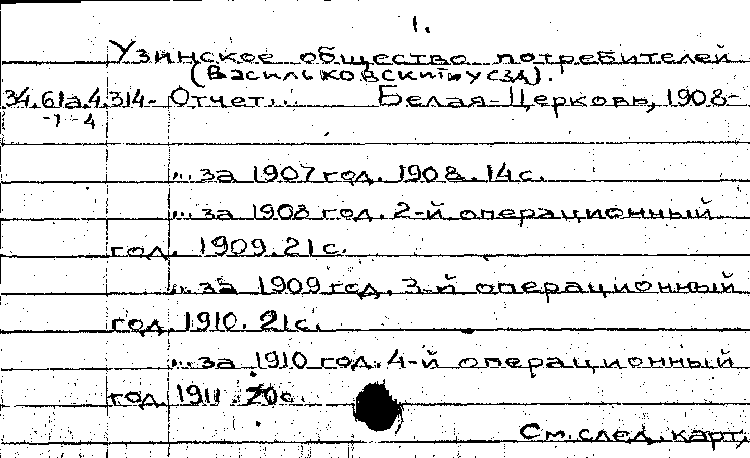 1.
Узинское общество потребителей
(Васильковский уезд).
34.61а.4.314- Отчет... Белая-Церковь, 1908-
-1-4
... за 1907 год. 1908. 14с.
... за 1908 год. 2-й операционный
год. 1909. 21с.
... за 1909 год. 3-й операционный
год. 1910. 21с.
... за 1910 год. 4-й операционный
год. 1911. 20с.
См. след. карт.